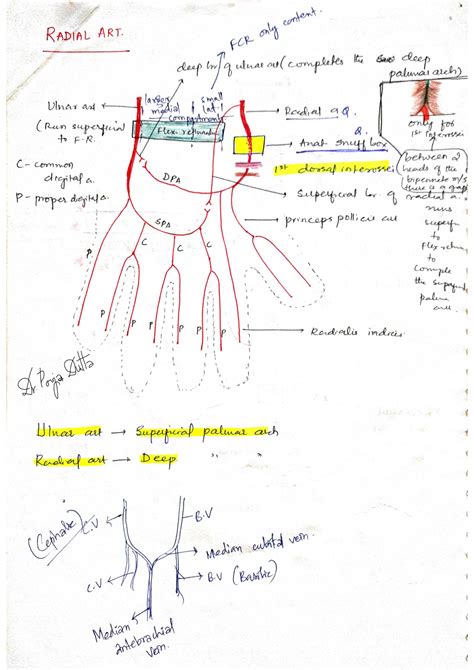 RADIAL ART.
FCR only content.
deep br of ulnar art (completes the deep
palmar arch)
Ulnar art
(Run superficial
to F.R.
larger
medial
&
small
lat-l
compartment
Flex. retina
Radial a
&
Anat snuff box
1st dorsal interossei
only for
1st Interossei
between 2
heads of the
bipennate m/s
there is a gap
C - common
digital a.
P - proper digital a.
DPA
SPA
Superficial br. of
radial a.
runs
superfi
to
flex retin
to
complete
the superfi
palmar
arch
princeps pollicis art
C
C
C
P
P
P
P
P
P
P
Radialis indicis
Dr. Porja Dutta
Ulnar art → Superficial palmar arch
Radial art → Deep " "
(Cephalic) C.V
B.V
Median cubital vein.
C.V
B.V (Basilic)
Median
antebrachial
vein.